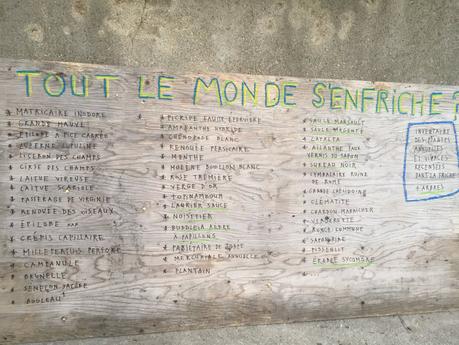 TOUT LE MONDE S'ENFRICHE ?
* MATRICAIRE INODORE
* GRANDE MAUVE
* LUZERNE LUPULINE
* LISERON DES CHAMPS
* CIRSE DES CHAMPS
* LAITUE VIREUSE
* LAITUE SCARIOLE
* PASSERAGE DE VIRGINIE
* RENOUÉE DES OISEAUX
* CRÉPIS CAPILLAIRE
* MILLEPERTUIS PERFORÉ
* CAMPANULE
* BRUNELLE
* SENEÇON JACOBÉE
* BOULEAU
* PICRIDE FAUSSE ÉPERVIÈRE
* AMARANTHE HYBRIDE
* CHÉNOPODE BLANC
* RENOUÉE PERSICAIRE
* MENTHE
* MOLÈNE BOUILLON BLANC
* ROSE TRÉMIÈRE
* VERGE D'OR
* TOPINAMBOUR
* LAURIER SAUCE
* NOISETIER
* BUDDLEIA ARBRE
À PAPILLONS
* MERCURIALE ANNUELLE
* PLANTAIN
* SAULE MARSAULT
* SAULE ARGENTÉ
* CATALPA
* AILANTHE FAUX
VERNIS DU JAPON
* SUREAU NOIR
* CYMBALAIRE RUINE
DE ROME
* GRANDE CHÉLIDOINE
* CLÉMATITE
* VERGERETTE
* RONCE COMMUNE
* SAPONAIRE
* PISSENLIT
* ÉRABLE SYCOMORE
INVENTAIRE
DES PLANTES
ANNUELLES
ET VIVACES
RECENSÉES
DANS LA FRICHE
+ ARBRES